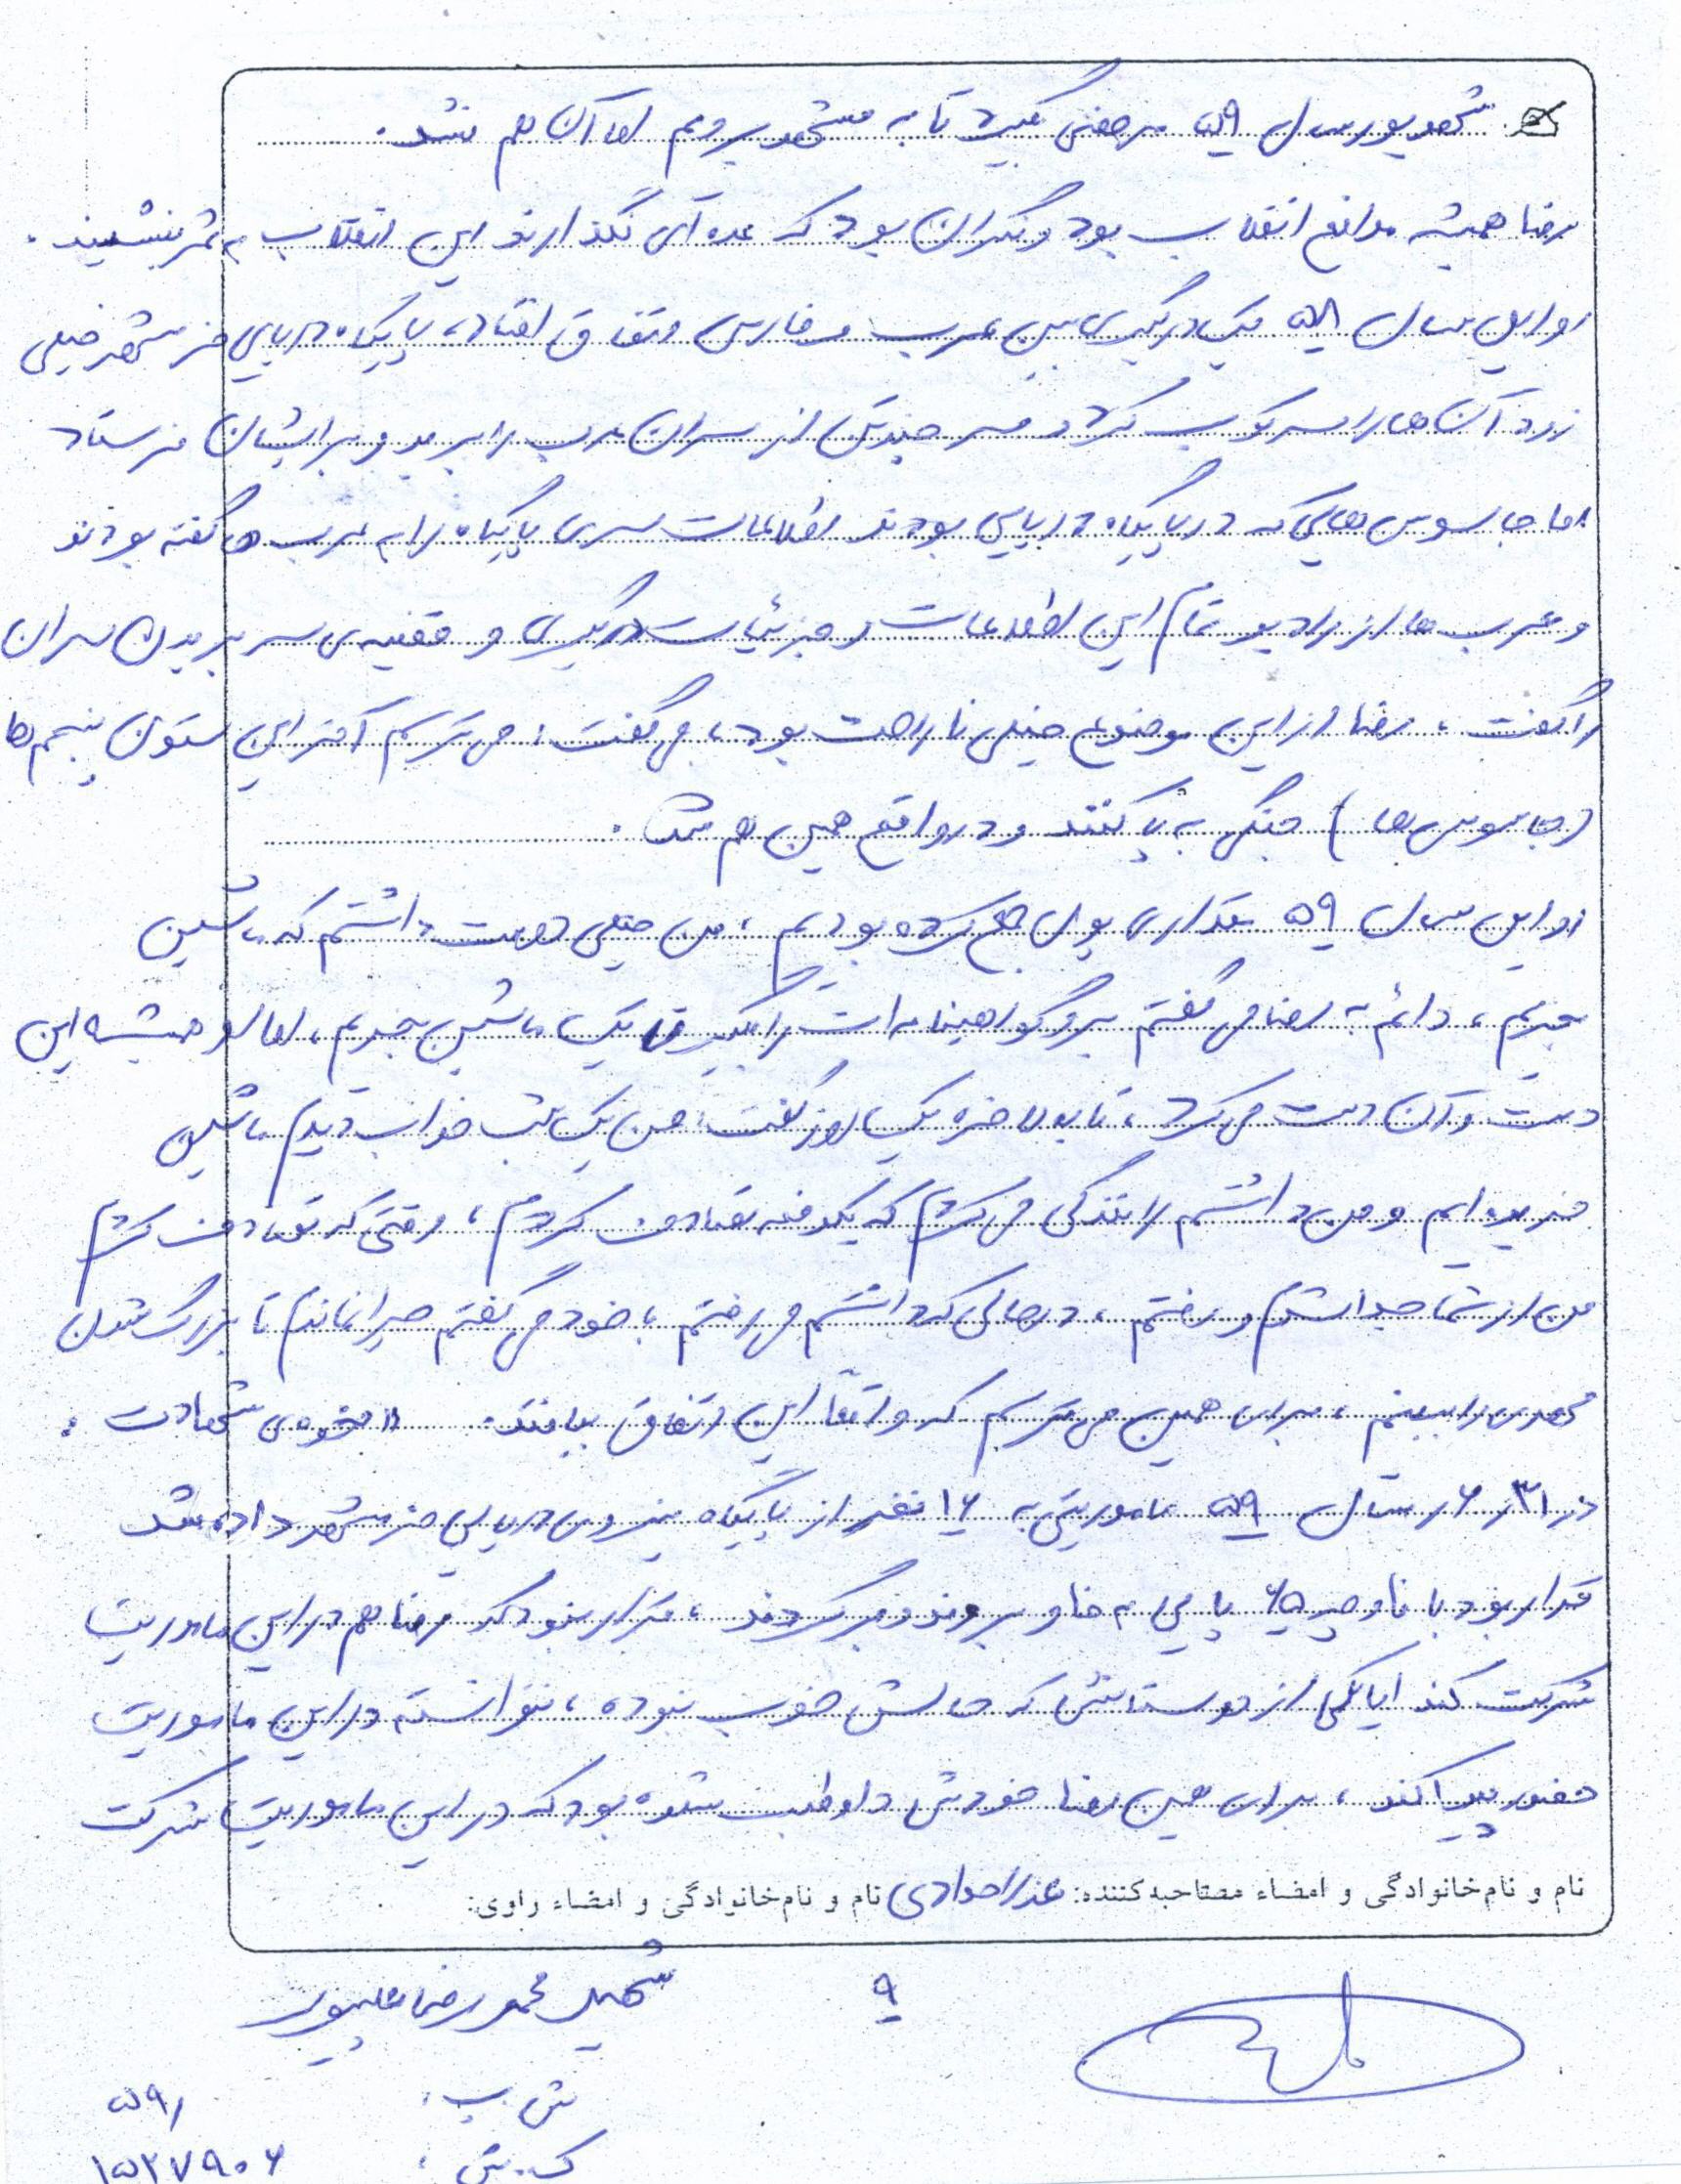 شهریور سال ۵۹ مرخصی بگیرد تا به مشهد برویم اما آن هم نشد.
رضا همیشه مدافع انقلاب بود و نگران بود که عده‌ای نگذارند این انقلاب به ثمر بنشیند.
اوایل سال ۵۸ یک درگیری بین عرب و فارس اتفاق افتاد، پایگاه دریایی خرمشهر خیلی
زود آن‌ها را سرکوب کرد و سر چند تن از سران عرب را برید و برایشان فرستاد
اما جاسوس‌هایی که در پایگاه دریایی بودند اطلاعات سری پایگاه را به عرب‌ها گفته بودند
و عرب‌ها از رادیو تمام این اطلاعات و جزئیات درگیری و قضیه‌ی سر بریدن سران
را گفت، رضا از این موضوع خیلی ناراحت بود، می‌گفت: می‌ترسم آخر این ستون پنجم‌ها
(جاسوس‌ها) جنگی به پا کنند و در واقع همین هم شد.
اوایل سال ۵۹ مقداری پول جمع کرده بودیم، من خیلی دوست داشتم که ماشین
بخریم، دائم به رضا می‌گفتم برو گواهینامه‌ات را بگیر تا یک ماشین بخریم، اما او همیشه این
دست و آن دست می‌کرد، تا بالاخره یک روز گفت: من یک شب خواب دیدم ماشین
خریده‌ایم و من داشتم رانندگی می‌کردم که یکدفعه تصادف کردم، وقتی که تصادف کردم
من از شما جدا شدم و رفتم، در حالی که داشتم می‌رفتم با خود می‌گفتم چرا نماندم تا بزرگ شدن
مهدی را ببینم، برای همین می‌ترسم که واقعاً این اتفاق بیافتد. " نحوه‌ی شهادت :
در ۳۱ر۶ر سال ۵۹ ماموریتی به ۱۶ نفر از پایگاه نیروی دریایی خرمشهر داده شد
قرار بود با ناوچه ۶۵ پایی به خاو بروند و برگردند، قرار نبود که رضا هم در این ماموریت
شرکت کند ایا یکی از دوستانش که حالش خوب نبوده، نتوانسته در این ماموریت
حضور پیدا کند، برای همین رضا خودش داوطلب شده بود که در این ماموریت شرکت
نام و نام‌خانوادگی و امضاء مصاحبه‌کننده: عذرا حدادی نام و نام‌خانوادگی و امضاء راوی:
۹
شهید محمدرضا علیپور
ش ب : ۵۹۱
ک. ش : ۱۵۲۷۹۰۶